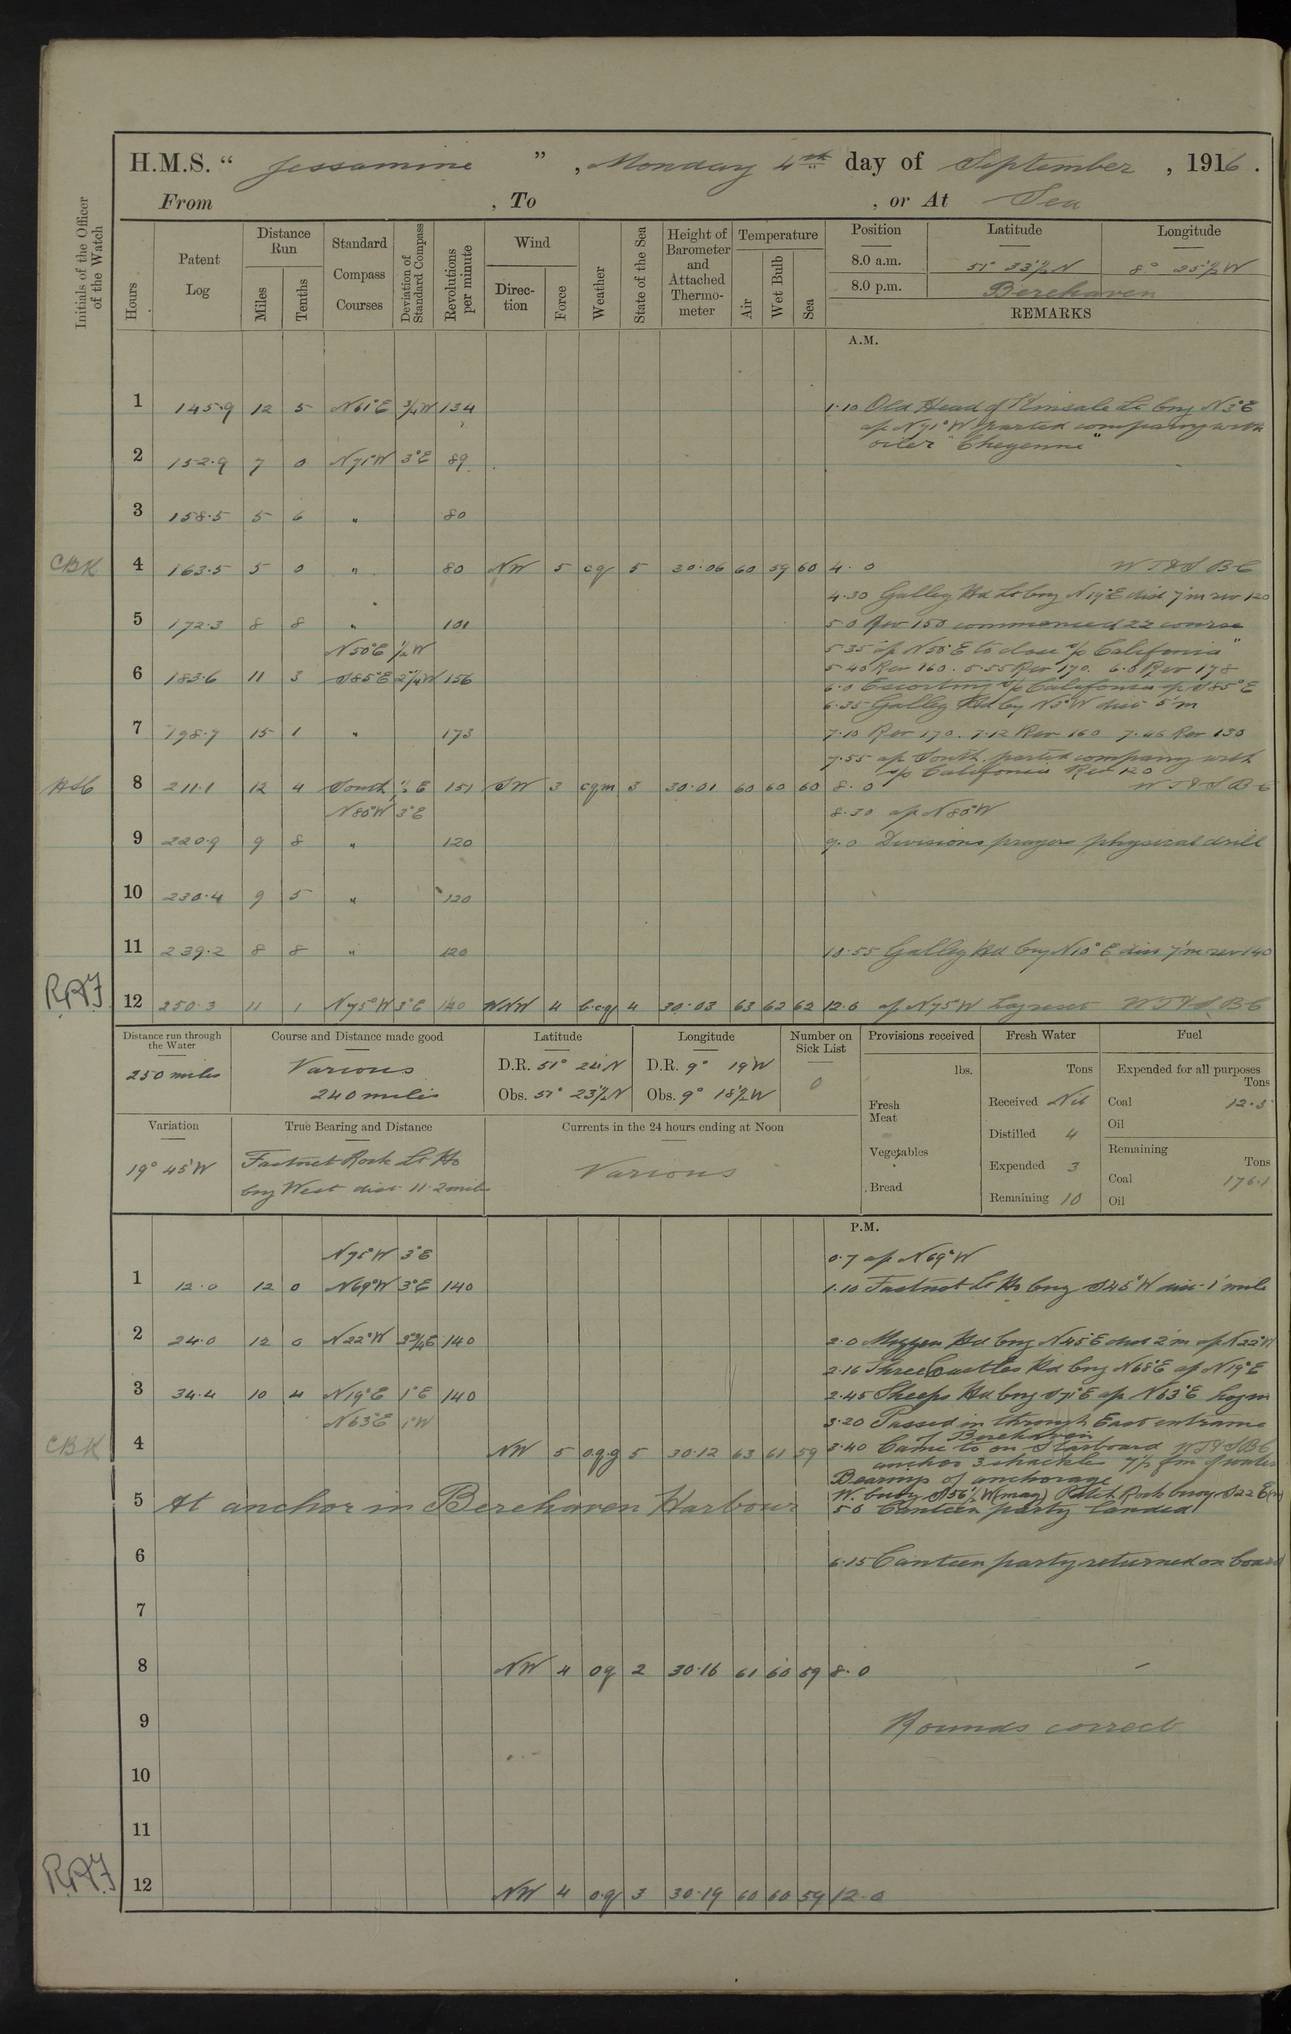 H.M.S. “ Jessamine ” , Monday 4th day of September , 1916 .
From , To , or At Sea
Initials of the Officer of the Watch
Hours
Patent Log
Distance Run
Miles
Tenths
Standard Compass Courses
Deviation of Standard Compass
Revolutions per minute
Wind
Direction
Force
Weather
State of the Sea
Height of Barometer and Attached Thermometer
Temperature
Air
Wet Bulb
Sea
Position Latitude Longitude
8.0 a.m. 51° 33½ N 8° 25½ W
8.0 p.m. Berehaven
REMARKS
A.M.
1 145.9 12 5 N61°E ¾W 134 1.10 Old Head of Kinsale Lt brg N3°E
a/c N71°W parted company with
oiler "Cheyenne"
2 152.9 7 0 N71°W 3°E 89
3 158.5 5 6 " 80
CBK 4 163.5 5 0 " 80 NW 5 cq 5 30.06 60 59 60 4.0 WT&S BC
4.30 Galley Hd Lt brg N19°E dist 7'm rev 120
5 172.3 8 8 " 101 5.0 Rev 150 commenced zz course
N50°E ½W 5.35 a/c N50°E to close s/s California"
6 183.6 11 3 S85°E 2¼W 156 5.40 Rev 160. 5.55 Rev 170. 6.0 Rev 178
6.0 Escorting s/s California a/c S85°E
6.35 Galley Hd brg N5°W dist 5'm
7 198.7 15 1 " 173 7.10 Rev 170. 7.12 Rev 160 7.46 Rev 130
7.55 a/c South. parted company with
s/s California Rev 120
8 211.1 12 4 South ½E 151 SW 3 cqm 3 30.01 60 60 60 8.0 WT&S BC
N80°W 3°E 8.30 a/c N80°W
9 220.9 9 8 " 120 9.0 Divisions prayers physical drill
10 230.4 9 5 " 120
11 239.2 8 8 " 120 10.55 Galley Hd brg N10°E dist 7'm rev 140
RAF 12 250.3 11 1 N75°W 3°E 120 WNW 4 bcq 4 30.03 63 62 62 12.0 a/c N75°W Log reset WT&S BC
Distance run through the Water
250 miles
Course and Distance made good
Various
240 miles
Latitude
D.R. 51° 24' N
Obs. 51° 23½ N
Longitude
D.R. 9° 19' W
Obs. 9° 18½ W
Number on Sick List
0
Provisions received
lbs.
Fresh Meat
Vegetables
Bread
Fresh Water
Tons
Received Nil
Distilled 4
Expended 3
Remaining 10
Fuel
Expended for all purposes
Tons
Coal 12.5
Oil
Remaining
Tons
Coal 176.1
Oil
Variation
19° 45' W
True Bearing and Distance
Fastnet Rock Lt Ho
brg West dist 11.2 miles
Currents in the 24 hours ending at Noon
Various
P.M.
N75°W 3°E 0.7 a/c N69°W
1 12.0 12 0 N69°W 3°E 140 1.10 Fastnet Lt Ho brg S45°W dist 1' mile
2 24.0 12 0 N22°W 140 2.0 Mizzen Hd brg N45°E dist 2'm a/c N22°W
2.16 Three Castles Hd brg N68°E a/c N19°E
3 34.4 10 4 N19°E 1°E 140 2.45 Sheeps Hd brg S71°E a/c N63°E
N63°E 1°W 3.20 Passed in through East entrance
of Berehaven
CBK 4 NW 5 oqg 5 30.12 63 61 59 3.40 Came to on Starboard WT&S BC
anchor 3 shackles 7½ fm of water
Bearings of anchorage
W. buoy S56½W (mag) Patch Rock buoy S22E (m)
5 At anchor in Berehaven Harbour 5.0 Canteen party landed
6 6.15 Canteen party returned on board
7
8 NW 4 oq 2 30.16 61 60 59 8.0 –
9 Rounds correct
10
11
RAF 12 NW 4 o.q 3 30.19 60 60 59 12.0